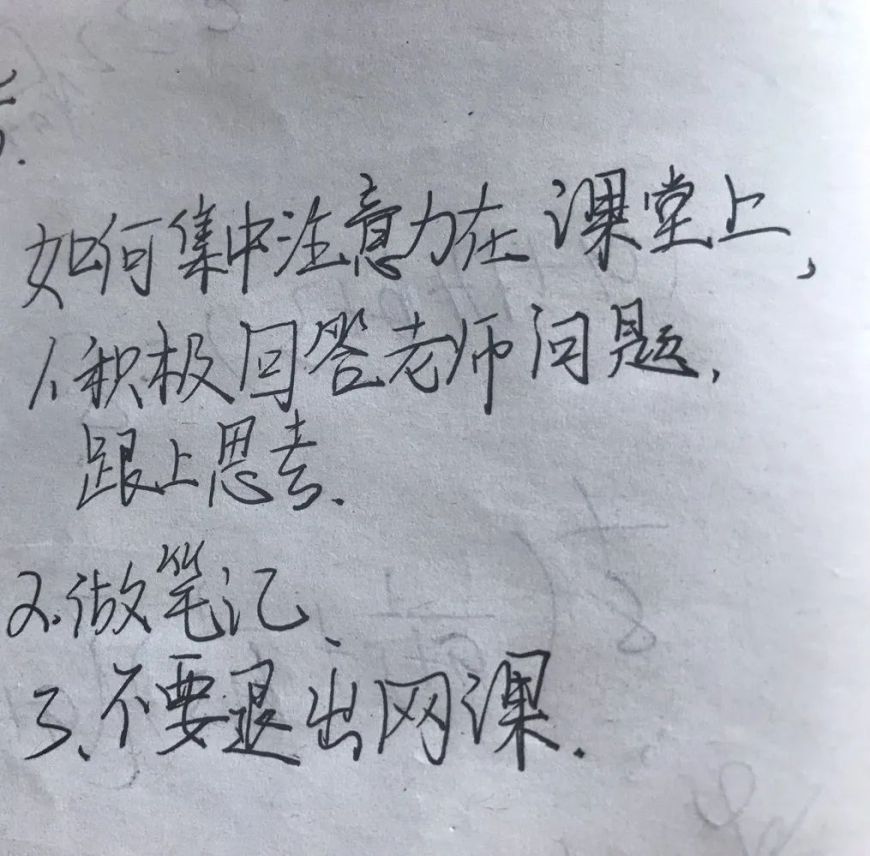 如何集中注意力在课堂上,
1.积极回答老师问题.
跟上思考.
2.做笔记.
3.不要退出网课.